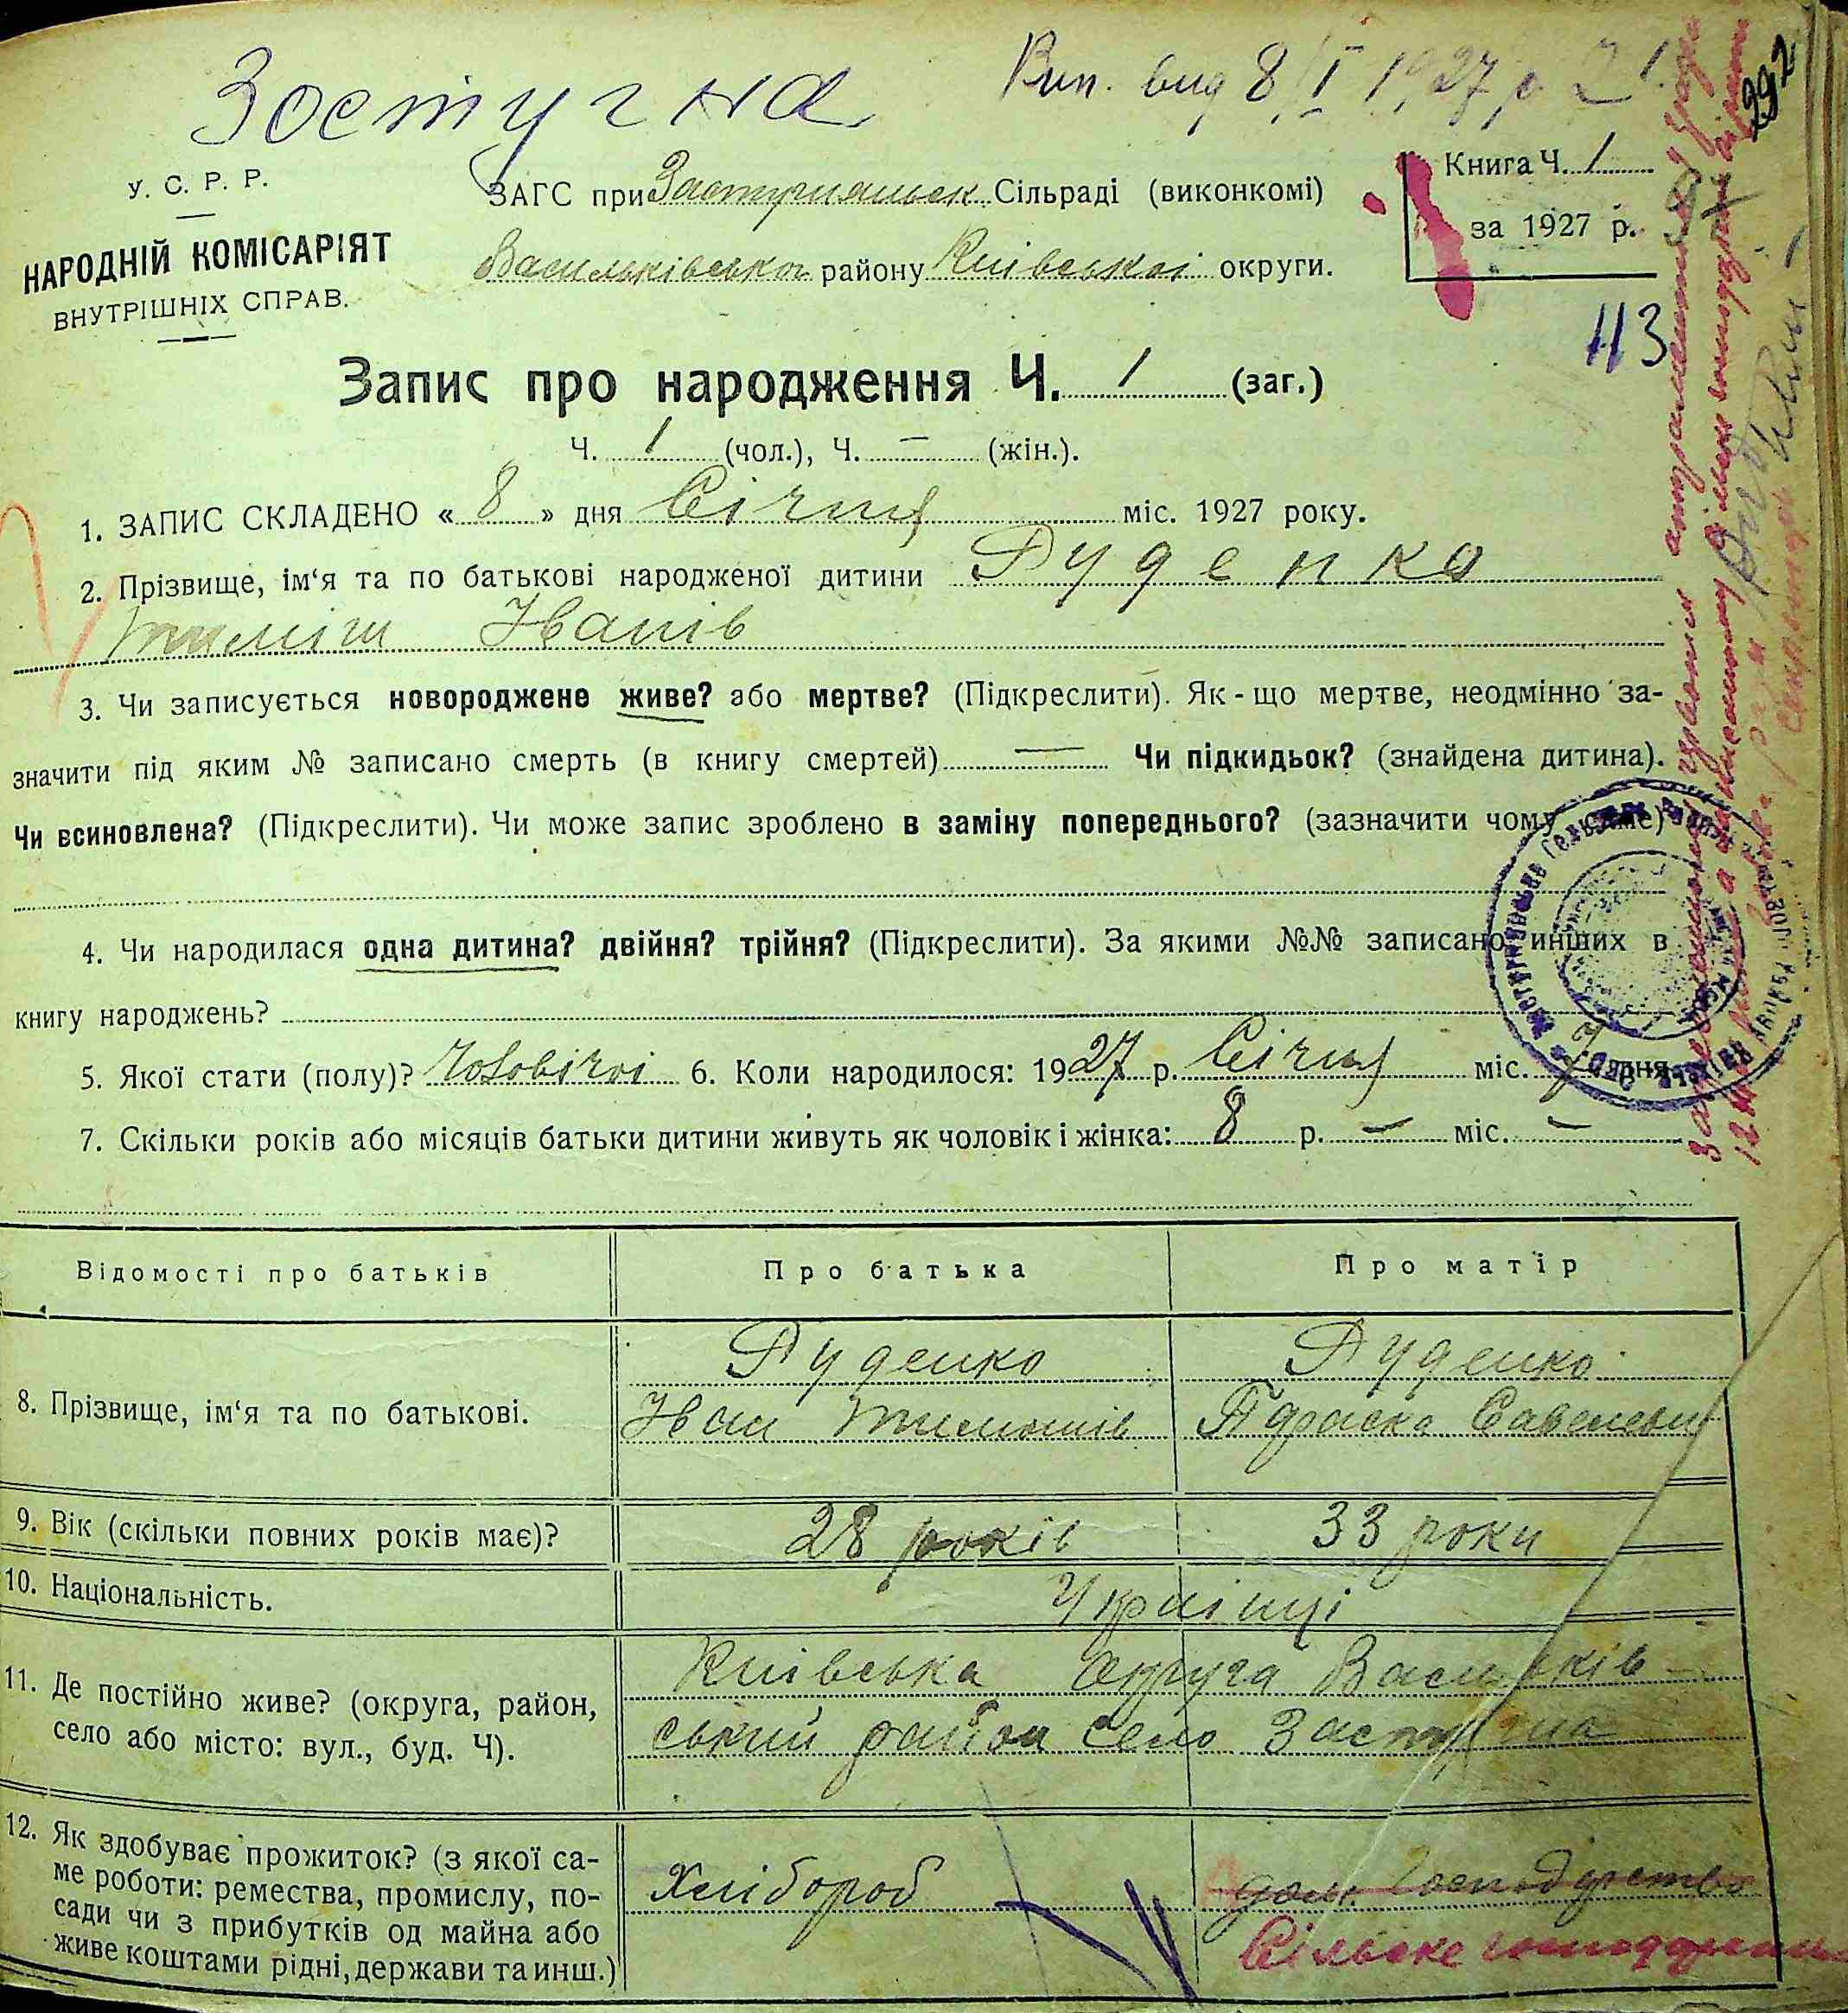 Застугна
Вип. вид 8/I 1927 р.
292
У. С. Р. Р.
НАРОДНІЙ КОМІСАРІЯТ
ВНУТРІШНІХ СПРАВ.
ЗАГС при Застугнянськ. Сільраді (виконкомі)
Васильківського району Київської округи.
Книга Ч. 1
за 1927 р.
113
Запис про народження Ч. 1 (заг.)
Ч. 1 (чол.), Ч. — (жін.).
1. ЗАПИС СКЛАДЕНО « 8 » дня Січня міс. 1927 року.
2. Прізвище, ім‘я та по батькові народженої дитини Руденко
Тиміш Іванів
3. Чи записується новороджене живе? або мертве? (Підкреслити). Як-що мертве, неодмінно за-
значити під яким № записано смерть (в книгу смертей) — Чи підкидьок? (знайдена дитина).
Чи всиновлена? (Підкреслити). Чи може запис зроблено в заміну попереднього? (зазначити чому саме)
4. Чи народилася одна дитина? двійня? трійня? (Підкреслити). За якими №№ записано инших в
книгу народжень?
5. Якої стати (полу)? Чоловічої 6. Коли народилося: 1927 р. Січня міс. 7 дня.
7. Скільки років або місяців батьки дитини живуть як чоловік і жінка: 8 р. — міс. —
Відомості про батьків
Про батька
Про матір
8. Прізвище, ім‘я та по батькові.
Руденко
Іван Тимошів
Руденко
Савелевна
9. Вік (скільки повних років має)?
28 років
33 роки
10. Національність.
Українці
11. Де постійно живе? (округа, район,
село або місто: вул., буд. Ч).
Київська округа Васильків-
ський район село Застугна
12. Як здобуває прожиток? (з якої са-
ме роботи: ремества, промислу, по-
сади чи з прибутків од майна або
живе коштами рідні, держави та инш.)
Хлібороб
дом. господарство
Сільське господарство